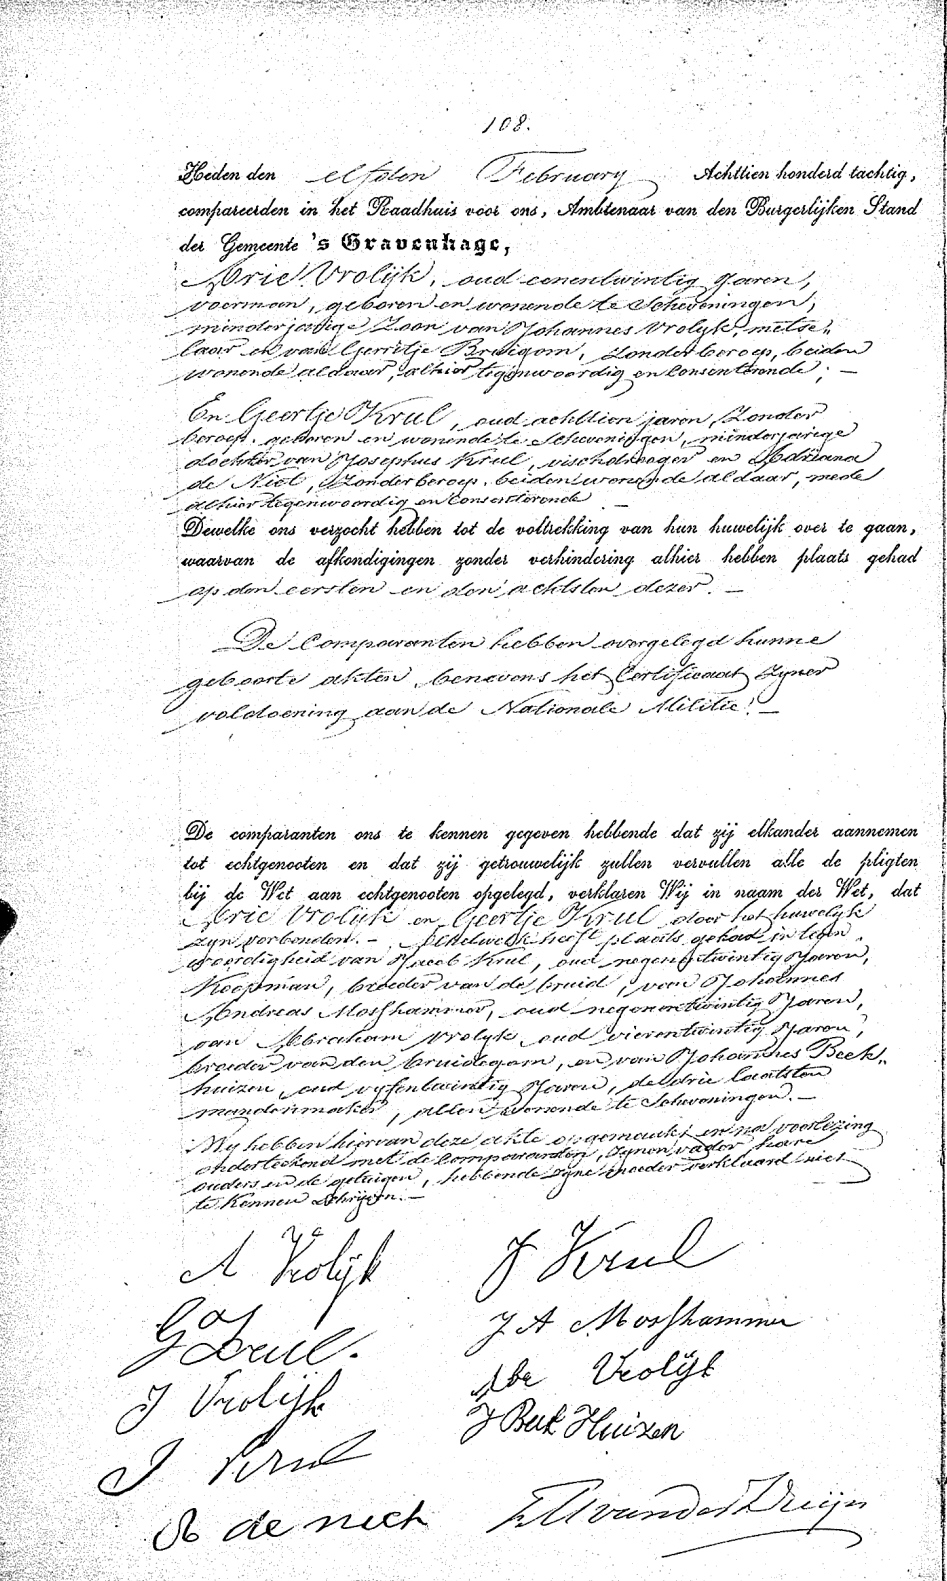 108.
Heden den elfden February Achttien honderd tachtig,
compareerden in het Raadhuis voor ons, Ambtenaar van den Burgerlijken Stand
der Gemeente 's Gravenhage,
Arie Vrolijk, oud eenentwintig Jaren,
voerman, geboren en wonende te Scheveningen,
minderjarige Zoon van Johannes Vrolyk, metse-
laar en van Gerritje Bruigom, Zonder beroep, beiden
wonende aldaar, alhier tegenwoordig en Consenterende; —
En Geertje Krul, oud achttien jaren, Zonder
beroep, geboren en wonende te Scheveningen, minderjarige
dochter van Josephus Krul, vischdroager en Adriana
de Niet, Zonder beroep, beiden wonende aldaar, mede
alhier tegenwoordig en Consenterende
Dewelke ons verzocht hebben tot de voltrekking van hun huwelijk over te gaan,
waarvan de afkondigingen zonder verhindering alhier hebben plaats gehad
op den eersten en den achtsten dezer. —
De Comparanten hebben overgelegd hunne
geboorte akten, benevens het Certificaat Zyner
voldoening aan de Nationale Militie. —
De comparanten ons te kennen gegeven hebbende dat zij elkander aannemen
tot echtgenooten en dat zij getrouwelijk zullen vervullen alle de pligten
bij de Wet aan echtgenooten opgelegd, verklaren Wij in naam der Wet, dat
Arie Vrolijk en Geertje Krul door het huwelyk
zyn verbonden. — Hetwelk heeft plaats gehad in tegen-
woordigheid van Jacob Krul, oud negenentwintig Jaren,
Koopman, broeder van de bruid, van Johannes
Andreas Mosshammer, oud negenentwintig Jaren,
van Abraham Vrolyk oud vierentwintig Jaren,
broeder van den bruidegom, en van Johannes Beek-
huizen, oud vyfentwintig Jaren, de drie laatsten
mandenmaker, allen wonende te Scheveningen. —
Wy hebben hiervan deze akte opgemaakt en na voorlezing
onderteekend met de Comparanten, Zynen vader hare
ouders en de getuigen, hebbende Zyne moeder verklaard niet
te kennen Schryven. —
A Vrolijk J Krul
G Krul. J A Mosshammer
J Vrolijk Abr Vrolijk
J Krul J Beek Huizen
A de niet van der Druijn